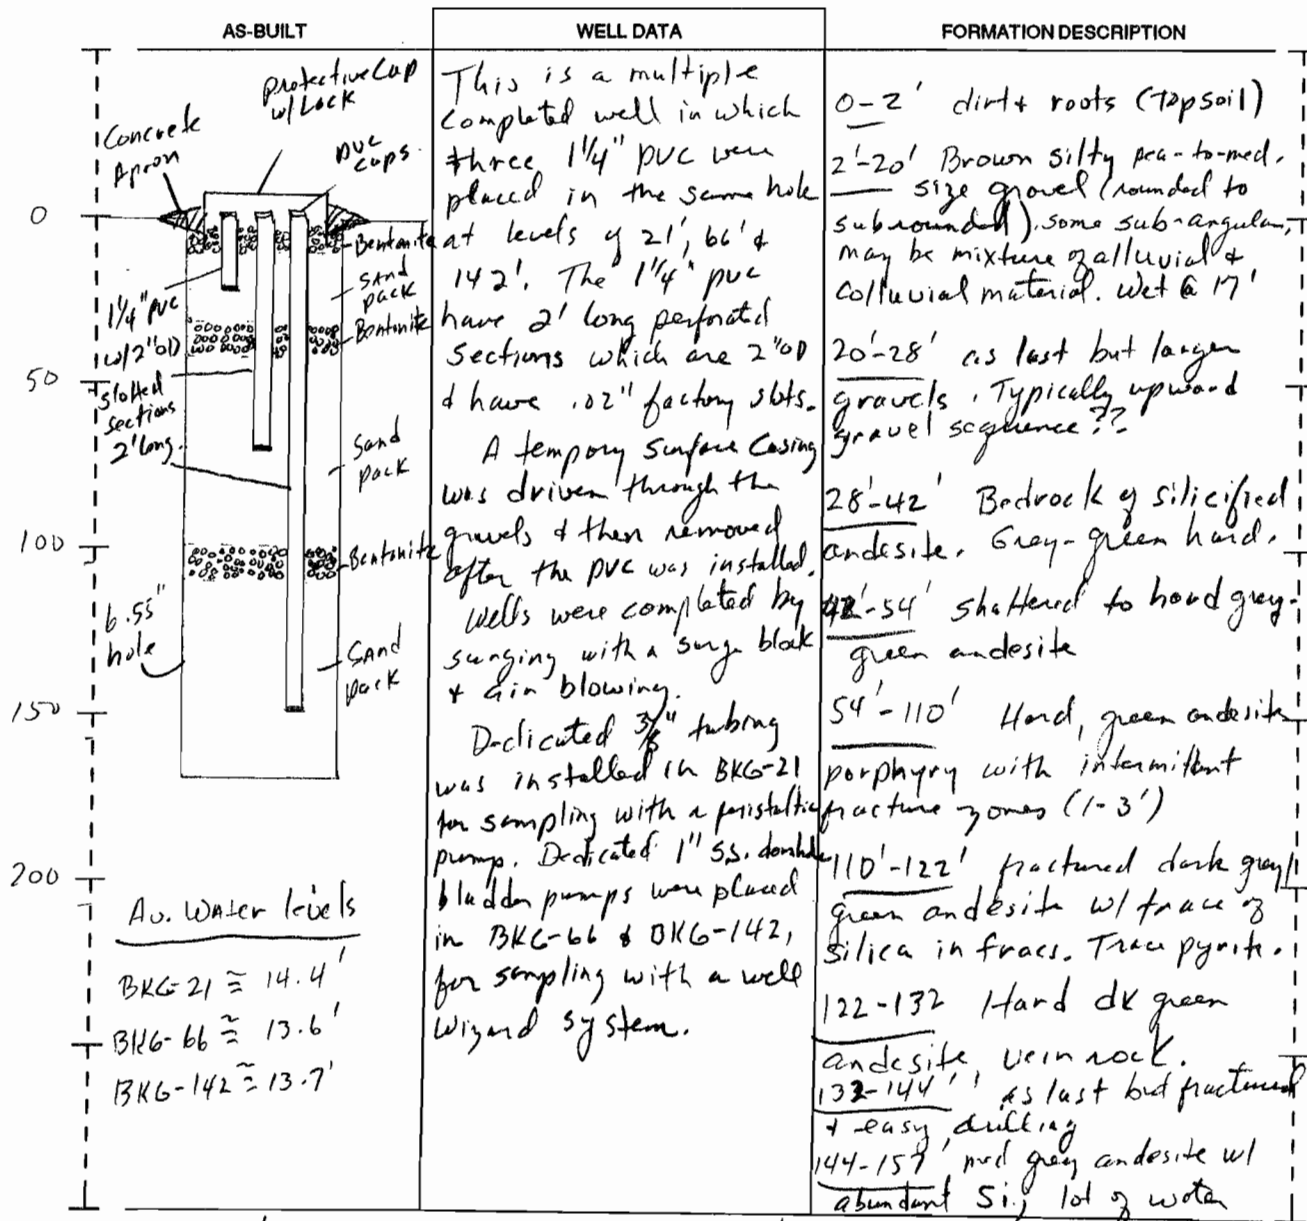 AS-BUILT
protective Cap
w/Lock
Concrete
Apron
PVC
caps.
0
Bentonite
SAnd
pack
1 1/4" PVC
Bentonite
w/2"OD
50
slotted
sections
2' long.
Sand
pack
100
Bentonite
6.55"
hole
SAnd
pack
150
200
Av. Water levels
BKG-21 ≅ 14.4'
BKG-66 ≅ 13.6'
BKG-142 ≅ 13.7'
WELL DATA
This is a multiple
completed well in which
three 1 1/4" PVC were
placed in the same hole
at levels of 21', 66' &
142'. The 1 1/4" pvc
have 2' long perforated
sections which are 2"OD
& have .02" factory slots.
A tempory surface Casing
was driven through the
gravels & then removed
after the PVC was installed.
Wells were completed by
surging with a surge block
& air blowing.
Dedicated 3/8" tubing
was installed in BKG-21
for sampling with a peristaltic
pump. Dedicated 1" S.S. downhole
bladder pumps were placed
in BKG-66 & BKG-142,
for sampling with a well
wizard system.
FORMATION DESCRIPTION
0-2' dirt & roots (Topsoil)
2'-20' Brown silty pea-to-med.
size gravel (rounded to
subrounded), some sub-angular,
may be mixture of alluvial &
colluvial material. Wet @ 17'
20'-28' as last but larger
gravels. Typically upward
gravel sequence??
28'-42' Bedrock of silicified
andesite. Grey-green hard.
42'-54' shattered to hard grey-
green andesite
54'-110' Hard, green andesite
porphyry with intermittent
fracture zones (1-3')
110'-122' fractured dark gray/
green andesite w/ trace of
silica in fracs. Trace pyrite.
122-132 Hard dk green
andesite, vein rock.
132-144' as last but fractured
& easy drilling
144-157' med grey andesite w/
abundant Si; lot of water